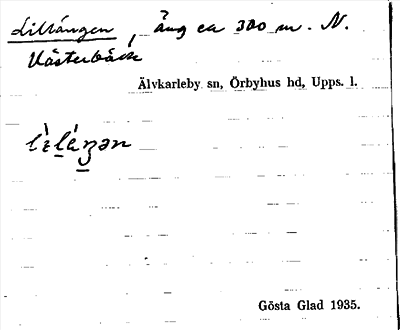 Lillängen, äng ca 300 m. N.
Västerbäck
Älvkarleby sn, Örbyhus hd, Upps. l.
Gösta Glad 1935.